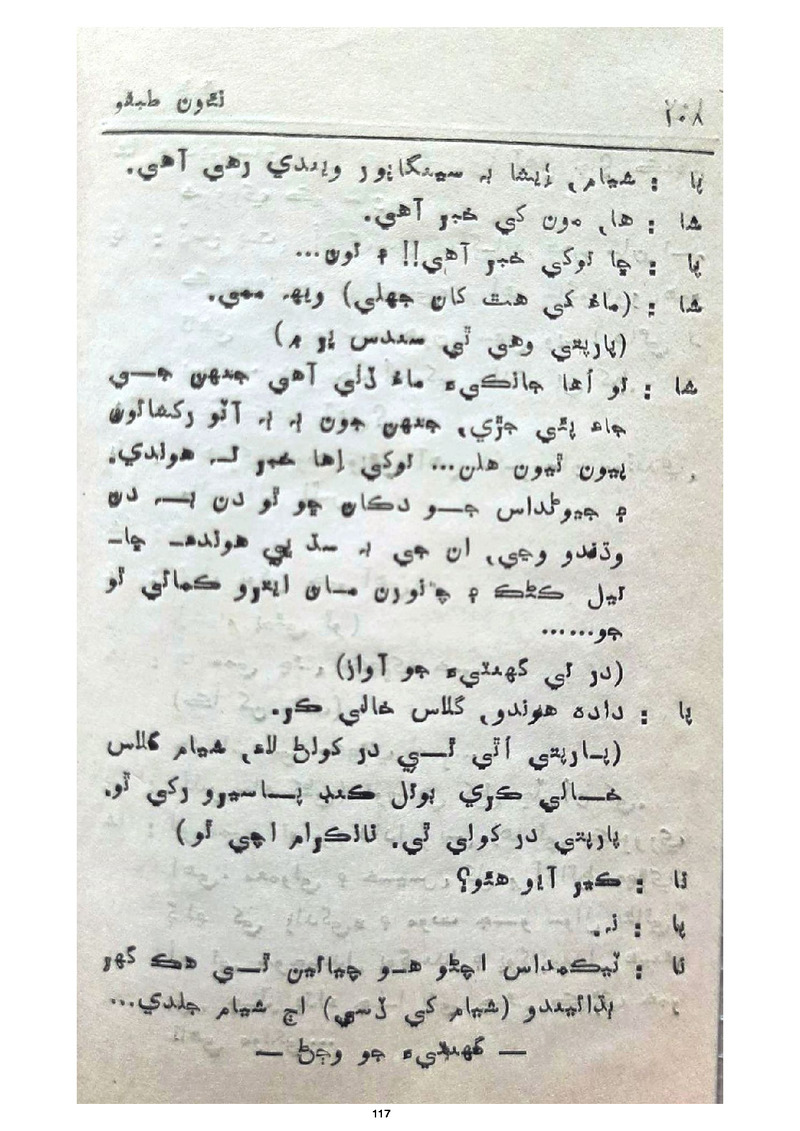 ٢٠٨ نئون طبقو
پا : شيام، ايشا بہ سينگاپور ويندي رهي آهي.
شا : ها، مون کي خبر آهي.
پا : ڇا توکي خبر آهي!! ۽ تون...
شا : (ماءُ کي هٿ کان جهلي) ويهہ ممي.
(پارپتي وهي ٿي سندس ڀر ۾)
شا : تو اُها جانڪيءَ ماءُ ڏٺي آهي جنهن جــي
جاءِ پٿي جڙي، جنهن جون ٻہ ٻہ آٽو رکشائون
پيون ٿيون هلن... توکي اِها خبر نــہ هوندي.
۽ جيوڻداس جــو دڪان جو ٿو دن بــہ دن
وڌندو وڃي، ان جي بہ سڌ ڀي هوندءِ۔ ڇا۔
تيل ڪڻڪ ۽ چانورن مــان ايترو ڪمائي ٿو
جو......
(در تي گهنٽيءَ جو آواز)
پا : دادا هوندو، گلاس خالي ڪر.
(پــارپتي اُٿي ٿــي در کولڻ لاءِ، شيام گلاس
خــالي ڪري بوتل ڪنڊ پــاسيرو رکي ٿو.
پارپتي در کولي ٿي. نانڪرام اچي ٿو)
نا : ڪير آيو هئو؟
پا : نہ.
نا : ٽيڪمداس اچڻو هــو چيائين ٿــي هڪ گهر
ٻڌائيندو (شيام کي ڏسي) اڄ شيام جلدي...
— گهنٽيءَ جو وڄڻ —
117